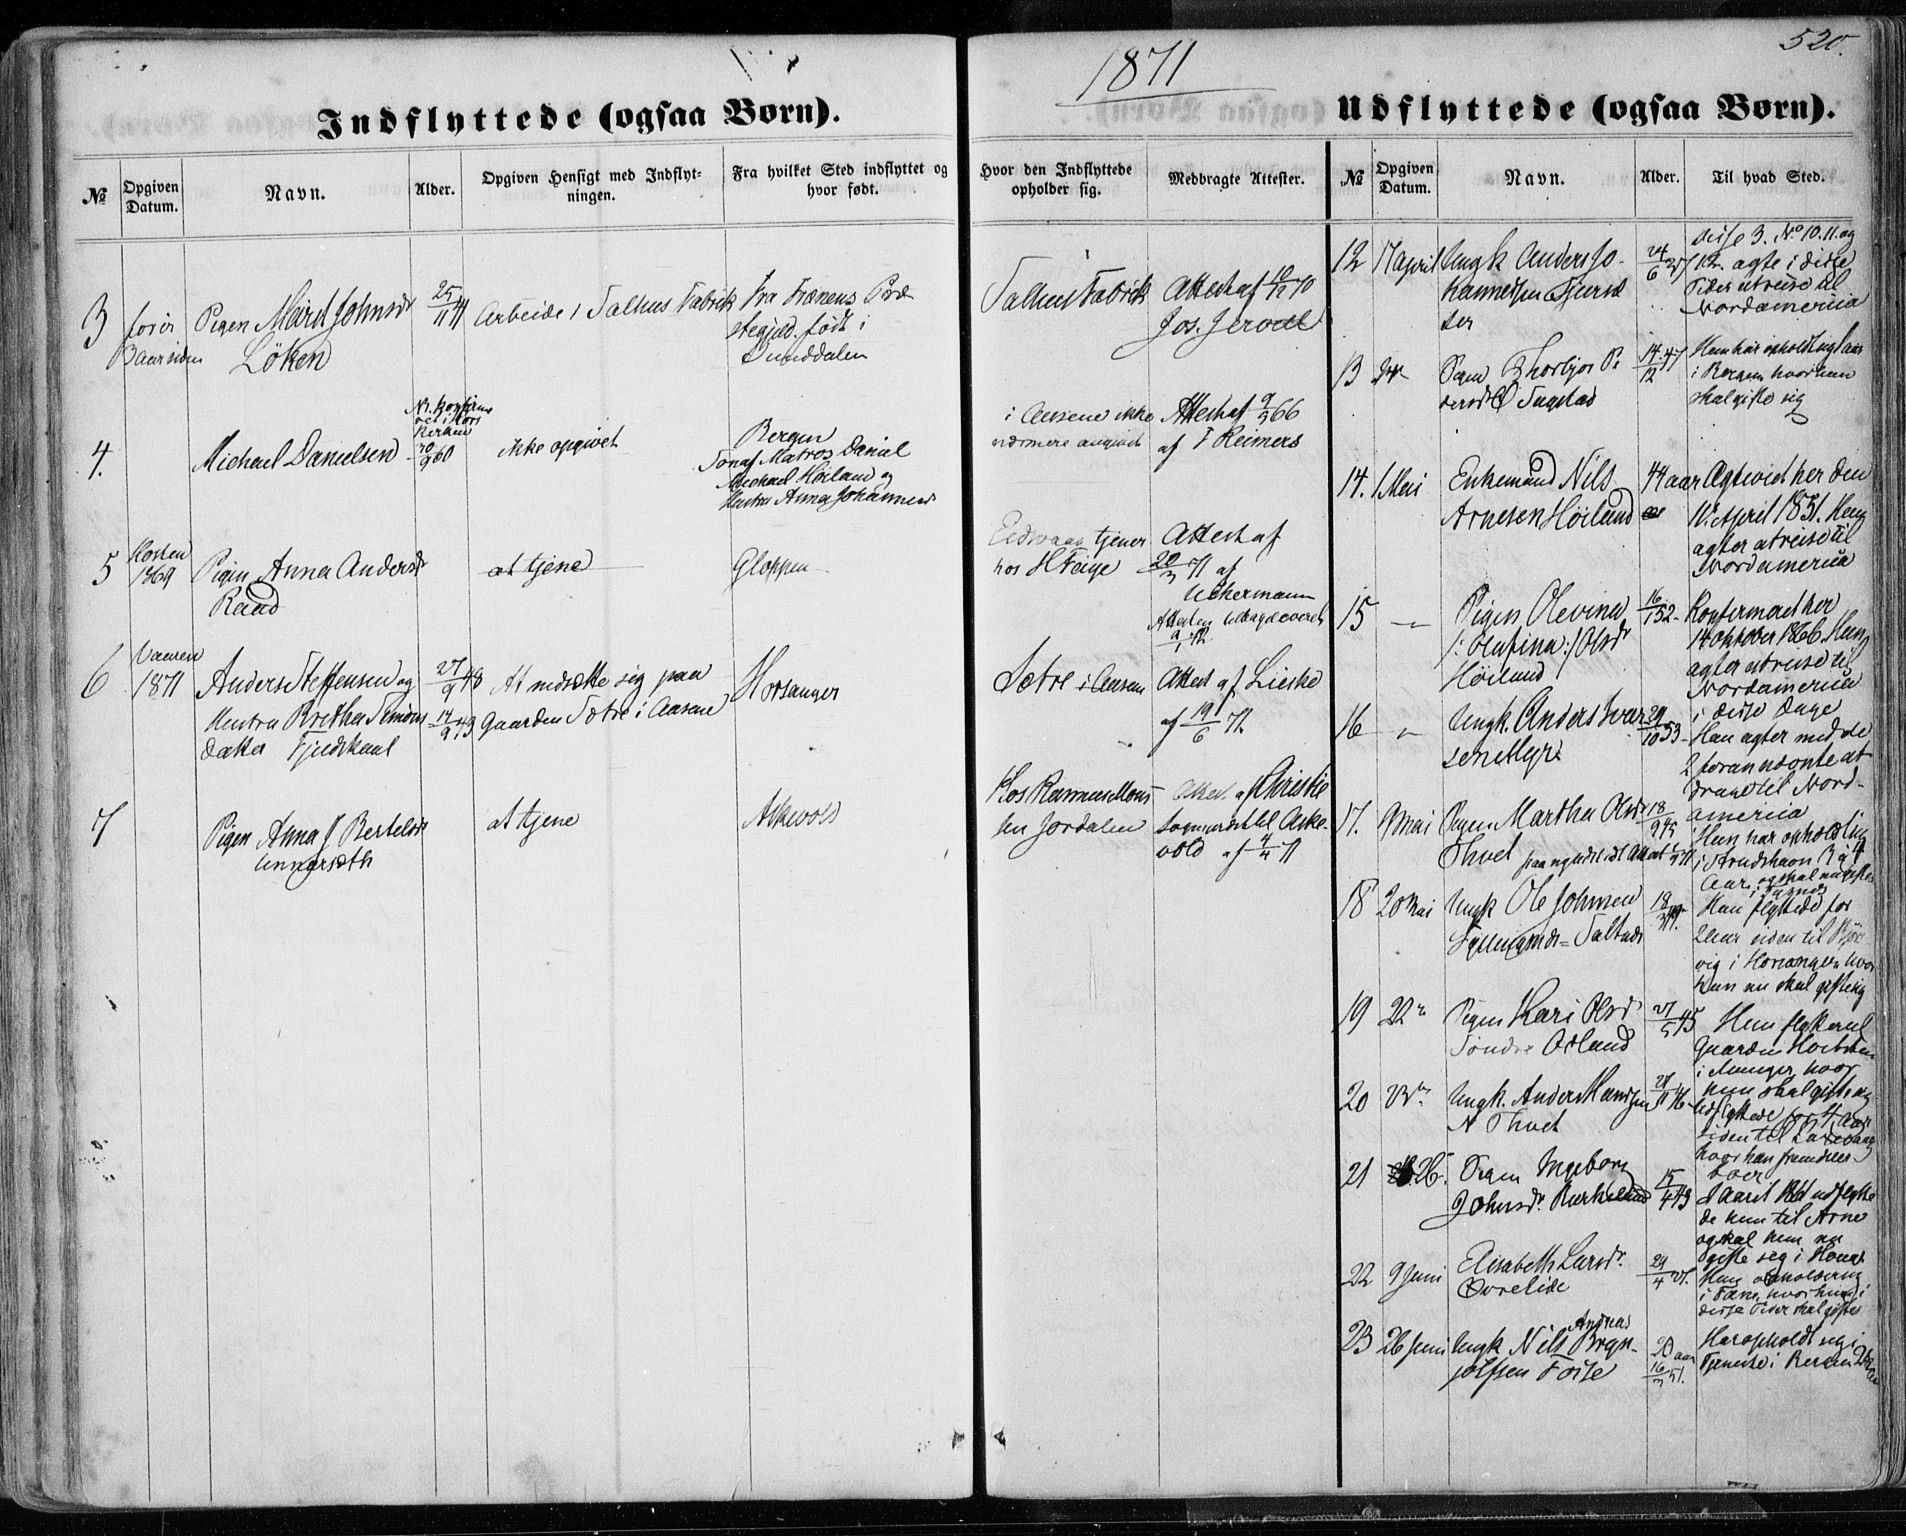 520.
1871
Indflyttede (ogsaa Børn).
Udflyttede (ogsaa Børn).
No
Opgiven Datum.
Navn.
Alder.
Opgiven Hensigt med Indflyt-
ningen.
Fra hvilket Sted indflyttet og
hvor født.
Hvor den Indflyttede
opholder sig.
Medbragte Attester.
3
for
3 aar siden
Pigen Marit Johnsdr
Löken
25/11 41
Arbeide i Salhus Fabrik
Fra Frænens Præ-
stegjæld. født i
Sunddalen
Salhus Fabrik
Attest af
Jos. Jervell
4.
Michael Danielsen
30/9 60
ikke opgivet
Bergen
Søn af Matros Daniel
Michael Höiland og
Hustru Anna Johannesdr
i Aasene ikke
nærmere angivet
Attest af 9/3 66
af F Reimers
5
Hösten
1869
Pigen Anna Andersdr
Raad
at tjene
Gloppen
Eidsvaag tjener
hos H Feige
Attest af
20/3 71 af
Uchermann
6
Vaaren
1871
Anders Steffensen og
Hustru Brithe Simons
datter Fjedskaal
27/9 48
14/9 43
At nedsætte sig paa
Gaarden Sætre i Aasene
Hosanger
Sætre i Aasene
Attest af Lieske
af 19/6 71.
7
Pigen Anna J Bertelsdr
Unnarsæth
at tjene
Askevold
Hos Rasmus Mons
sen Jordalen
Attest af Christie
Sognepræst til Aske-
vold af 4/4 71
No
Opgiven Datum.
Navn.
Alder.
Til hvad Sted.
12
17 april
Ungk Anders Jo-
hannessen
24/6
disse 3. No 10. 11. og
12. agte i disse
Tider at reise til
Nordamerica
13
Pigen Thorbjør Pe
dersdr Ø Tugstad
14/12 47
Hun har opholdt sig 1 aar
i Bergen hvor hun
skal gifte sig
14.
1 Mai
Enkemand Nils
Arnesen Höiland
44 aar
Ægteviet her den
11. April 1851. Han
agter at reise til
Nordamerica
15
Pigen Olevina
/: Olufina :/ Olsdr
Höiland
16/1 52
Confirmeret her
14 oktober 1866. Hun
agter at reise til
Nordamerica
i disse Dage
16
Ungk. Anders Ivar
sen Myre
29/10 53
Han agter med de
2 forannævnte at
drage til Nord-
america
17.
9 Mai
Pigen Martha Olsdr
Thvet
18/9 45
Hun har opholdt sig
i Arnehavn
Aar, og skal nu giftes
18
20 Mai
Ungk Ole Johnsen
18/3 49
Han flyttede for
2 Aar siden til
vig i Hosanger hvor
han nu skal gifte sig
19
22
Pigen Kari Olsdr
Söndre Aaland
27/5 45
Hun flytter til
Gaarden
i Hosanger, hvor
hun skal gifte sig
20
23
Ungk. Anders Hansen
N Thvet
Udflyttede for 4 Aar
siden til Laxevaag
hvor han fremdeles
boer
21
26.
Pigen Ingeborg
Johnsdr. Birkeland
15/4 43
I Aaret 1861 udflytte
de hun til Arne
og skal hun nu
gifte sig i Haus
22
9 Juni
Elisabeth Larsdr.
Øvrelide
29/4
Hun opholder sig
i Fane, hvor hun i
disse Tider skal giftes
23
26 Juni
Andreas
Ungk Nils Bryn-
jolfsen Tosse
20 aar
16/3 51.
Har opholdt sig i
Tjeneste i Bergen